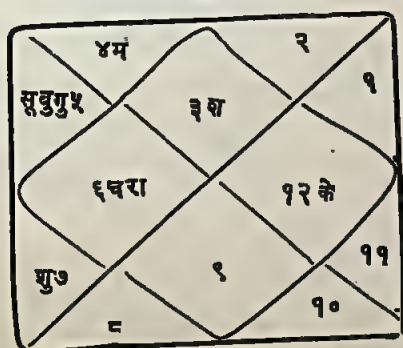 ४मं
२
सूबुगु५
३श
१
६चंरा
१२ के
शु७
९
११
१०
८